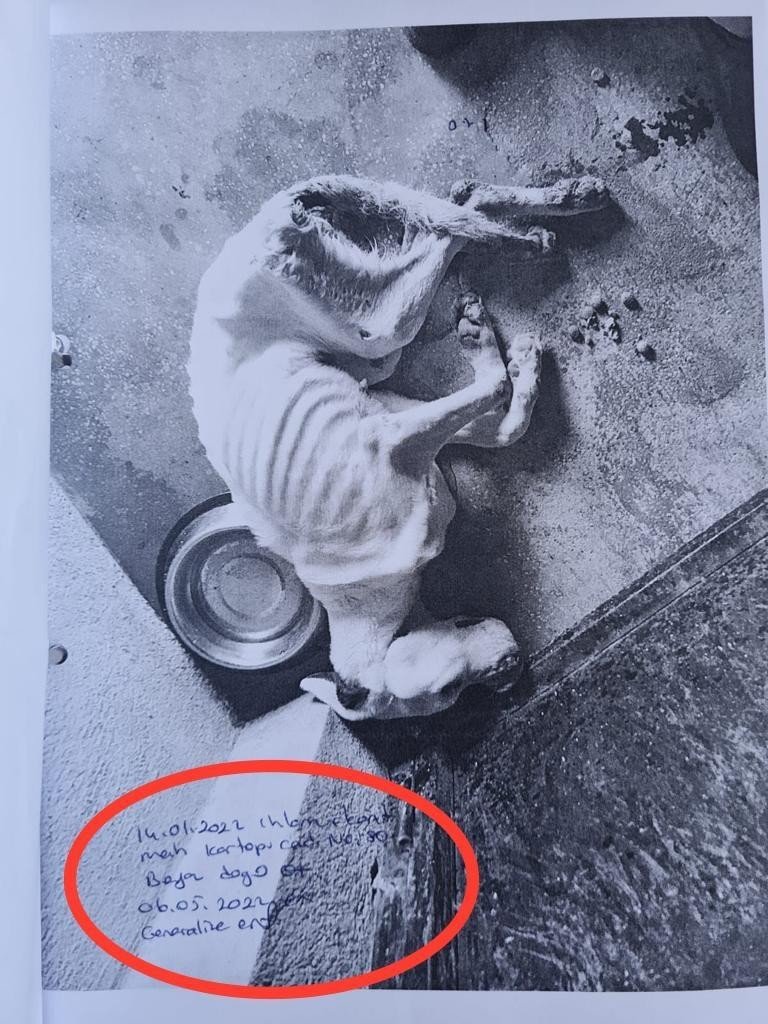 071
14.01.2022 Ihlamurkonut
mah Kartopu cad. No:30
Beyaz dogo
06.05.2022
Generalize